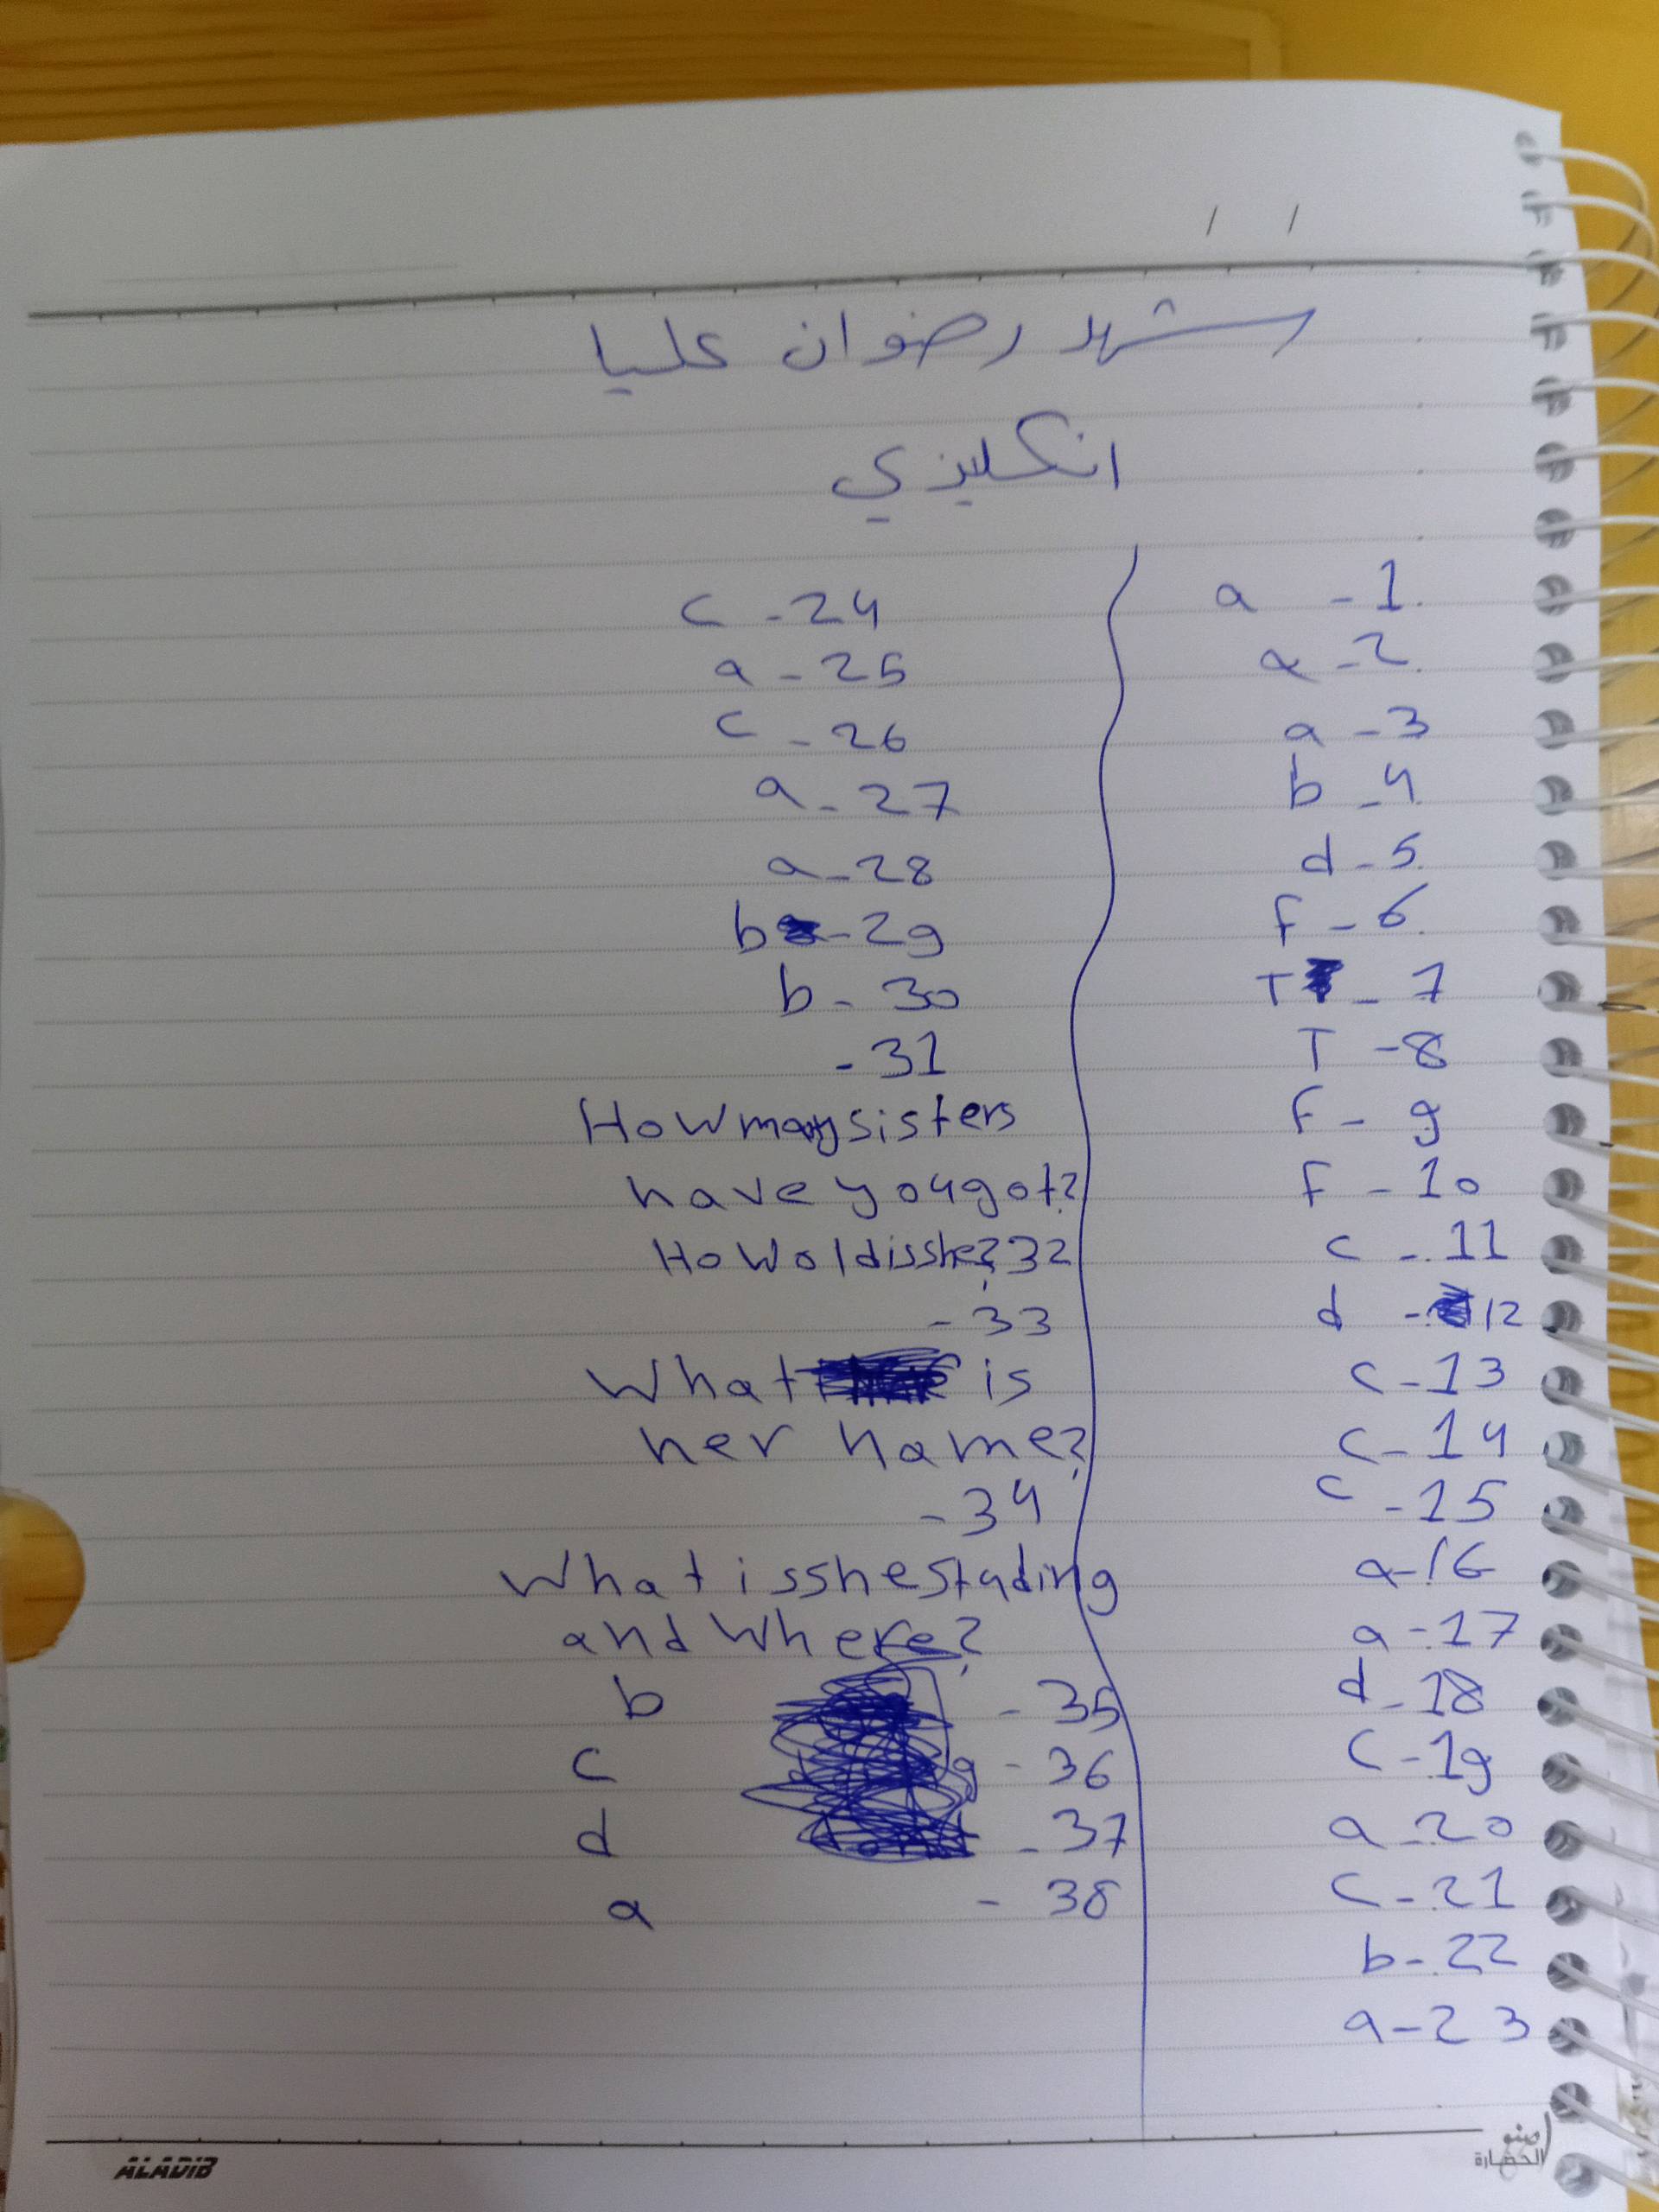 / /
شهد رضوان عليا
انكليزي
a - 1
a - 2
a - 3
b - 4
d - 5
F - 6
T - 7
T - 8
F - 9
F - 10
c - 11
d - 12
c - 13
c - 14
c - 15
a - 16
a - 17
d - 18
c - 19
a - 20
c - 21
b - 22
a - 23
c - 24
a - 25
c - 26
a - 27
a - 28
b - 29
b - 30
- 31
How many sisters
have you got?
How old is she? 32
- 33
What is
her name?
- 34
What is she studing
and Where?
b - 35
c - 36
d - 37
a - 38
ALADIB
صنو
الحضارة